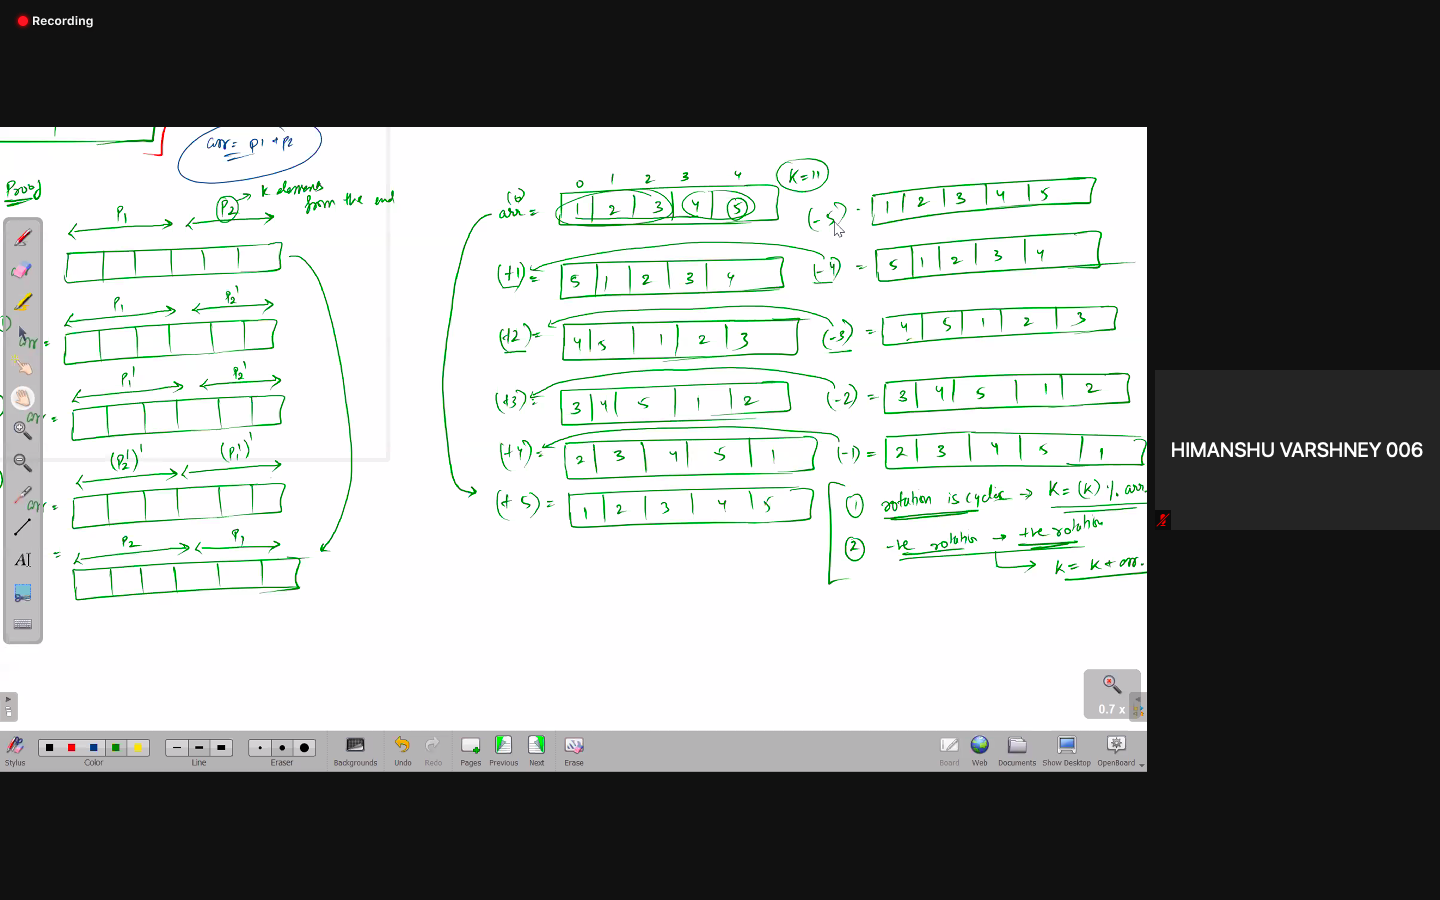 Recording
arr = P1 + P2
Proof
P2 → K elements from the end
P1
P1 P2'
①
arr =
P1' P2'
arr =
(P2')' (P1')'
arr =
P2 P1
=
0 1 2 3 4
K=11
(0)
arr = 1 2 3 4 5
(+1) = 5 1 2 3 4
(+2) = 4 5 1 2 3
(+3) = 3 4 5 1 2
(+4) = 2 3 4 5 1
(+5) = 1 2 3 4 5
(-5) 1 2 3 4 5
(-4) = 5 1 2 3 4
(-3) = 4 5 1 2 3
(-2) = 3 4 5 1 2
(-1) = 2 3 4 5 1
① rotation is cyclic → K = (K) % arr.
② -ve rotation → +ve rotation
→ K = K + arr.
HIMANSHU VARSHNEY 006
0.7 x
Stylus Color Line Eraser Backgrounds Undo Redo Pages Previous Next Erase Board Web Documents Show Desktop OpenBoard